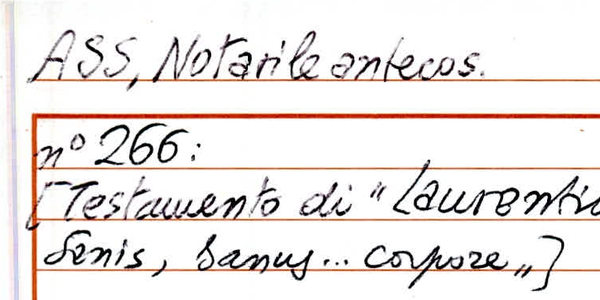 ASS, Notarile antecos.
n° 266:
[Testamento di "Laurentiu
Senis, sanus... corpore"]